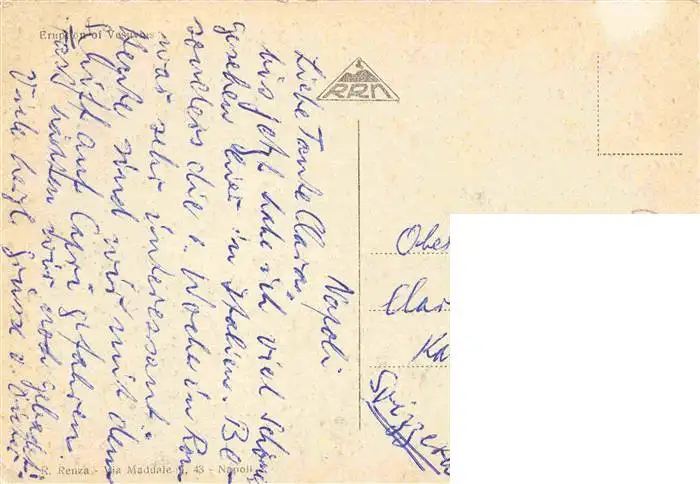 Eruption of Vesuvius
RRN
Napoli
Liebe Tante Clara,
bis jetzt habe ich viel Schönes
gesehen hier in Italien. Be-
sonders die 1. Woche in Rom
war sehr interessant.
Heute sind wir mit dem
Schiff auf Capri gefahren.
Fast hätten wir noch gebadet.
Viele herzl. Grüsse v.
Obe
Clar
Ka
Svizzera
R. Renza - Via Maddale 43 - Napoli